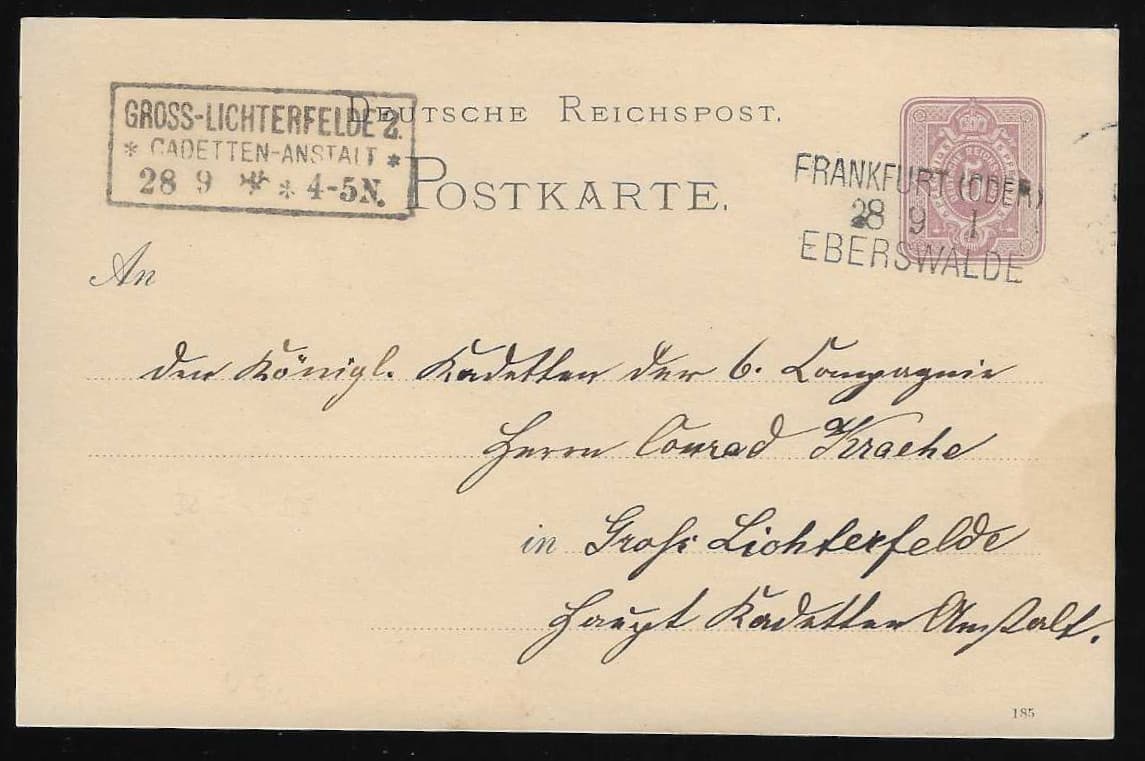 GROSS-LICHTERFELDE 2.
* CADETTEN-ANSTALT *
28 9 * * 4-5N.
DEUTSCHE REICHSPOST.
POSTKARTE.
FRANKFURT (ODER)
28 9 I
EBERSWALDE
An
den Königl. Kadetten der 6. Compagnie
Herrn Conrad Kraehe
in Groß Lichterfelde
Haupt Kadetten Anstalt.
185